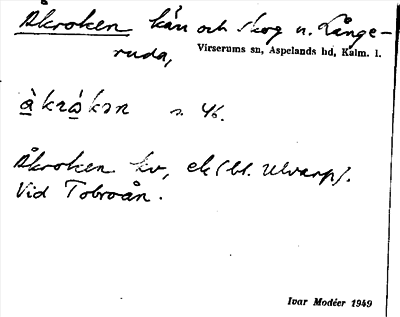 Åkroken kärr och skog n. Långe-
ruda,
Virserums sn, Aspelands hd, Kalm. l.
à krá kən s. 46.
Åkroken kv, ek (bl. Ulvarp).
Vid Tobroån.
Ivar Modéer 1949